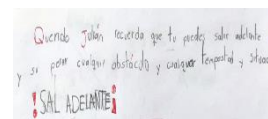 Querido Julián recuerda que tu puedes salir adelante
y su perar cualquier obstáculo y cualquier tempestad y
¡SAL ADELANTE!